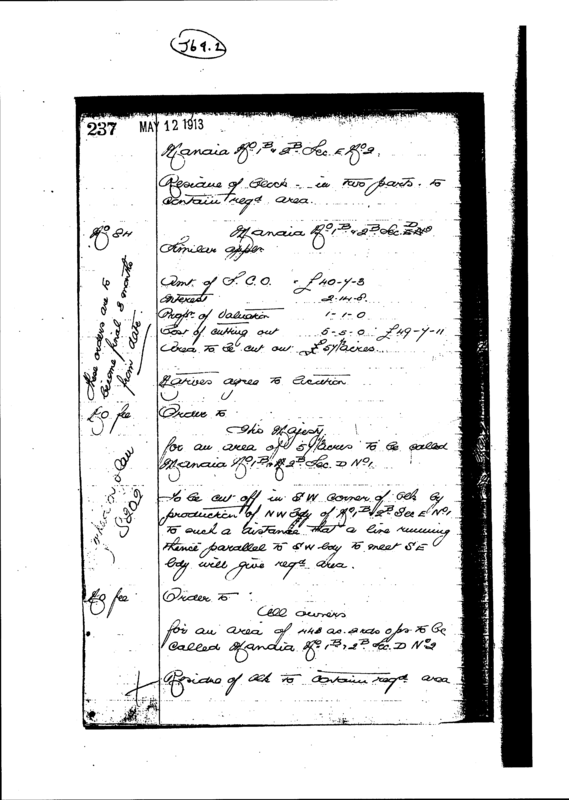 J69.2
237 MAY 12 1913
Manaia No 1B & 2B Sec. E No 2.
Residue of Block - in two parts. to
contain reqd area.
No 84
Manaia No 1B & 2B Sec. D
Similar appln
Amt. of S.C.O. - £40-7-3
Interest 2.14.8.
Propn. of Valuation 1-1-0
Cost of cutting out 5-5-0 £49-7-11
Area to be cut out 57 acres
these orders are to
become final 3 months
from date.
Natives agree to location
No fee
Order to
His Majesty
for an area of 57 acres to be called
Manaia No 1B & 2B Sec. D No 1.
To be cut off in SW corner of blk by
production of NW bdy of No 1B & 2B Sec E No 1
to such a distance that a line running
thence parallel to SW bdy to meet SE
bdy will give reqd area.
No fee
Order to
All owners
for an area of 448 ac. 2 rds 0 prs to be
called Manaia No 1B & 2B Sec. D No 2
Residue of blk to contain reqd area